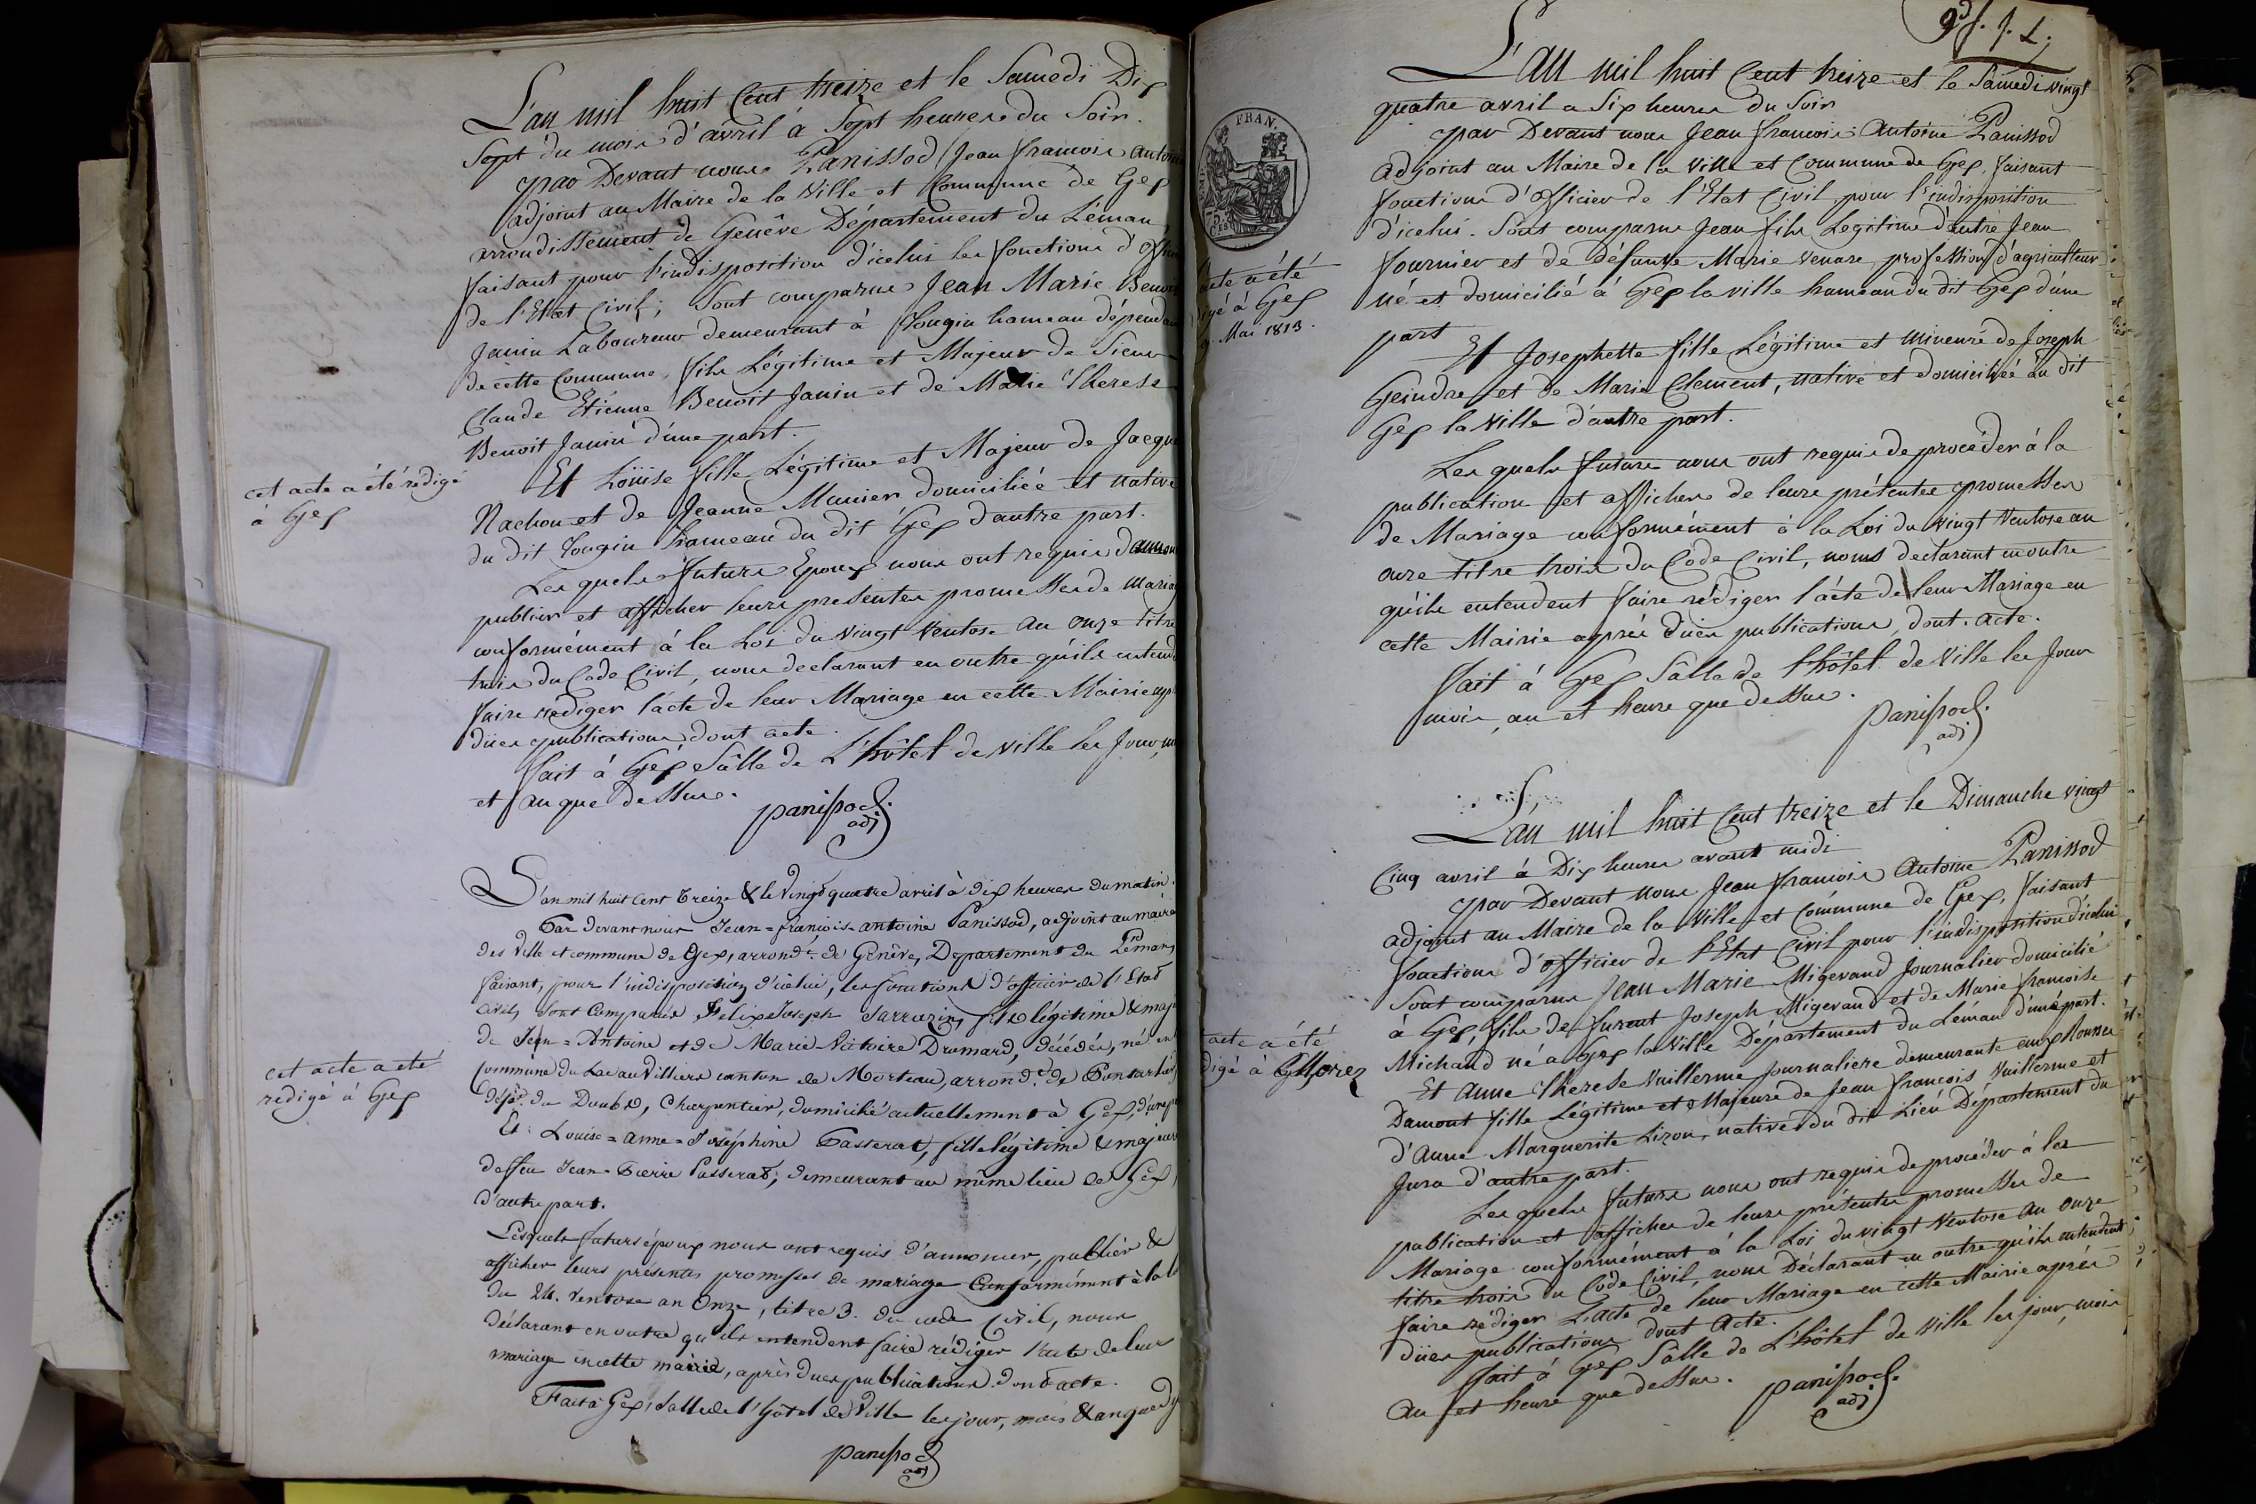 L'an mil huit Cent treize et le Samedi Dix
Sept du mois d'avril à Sept heures du Soir.
par Devant nous Panissod Jean francois antoine
adjoint au Maire de la Ville et Commune de Gex
arrondissement de Genêve Département du Léman
faisant pour l'indisposition d'icelui les fonctions d'offi
de l'Etat Civil; Sont comparus Jean Marie Benoit
Janin Laboureur demeurant à Tougin hameau dépendan
de cette Commune, fils Légitime et Majeur de Sieur
Claude Etienne Benoit Janin et de Marie Therese
Benoit Janin d'une part.
Et Loüise fille Légitime et Majeur de Jacque
Nachon et de Jeanne Munier domiciliée et native
du dit Tougin hameau du dit Gex d'autre part.
Lesquels futurs Epoux nous ont requis d'annon
publier et afficher leurs presentes promesses de Maria
conformément à la Loi du vingt Ventose an onze titre
trois du Code Civil, nous declarant en outre qu'ils entend
faire rediger l'acte de leur Mariage en cette Mairie ap
dües publications dont acte.
fait à Gex Sâlle de L'hôtel de Ville les Jour, m
et an que dessus.
panissod
adj
cet acte a été rédigé
à Gex
L'an mil huit Cent treize & le vingt quatre avril à dix heures du matin.
Par devant nous Jean-françois-antoine Panissod, adjoint au maire
des Ville et commune de Gex, arrond.t de Genêve, Departement du Léman,
faisant, pour l'indisposition d'icelui, les fonctions d'officier de l'Etat
civil, sont Comparus Felix Joseph Sarrazin, fils légitime & maj
de Jean-Antoine et de Marie Victoire Dromard, décédés, né en
commune du Lac au Villers canton de Morteau, arrond.t de Pontarlier
dép.t du Doubs, Charpentier, domicilié actuellement à Gex, d'une p
Et Louise-anne-Joséphine Passerat, fille légitime & majeure
de feu Jean-Pierre Passerat, demeurant au même lieu de Gex,
d'autre part.
Lesquels futurs époux nous ont requis d'annoncer, publier &
afficher leurs présentes promesses de mariage Conformément à la l
du 24. Ventose an Onze, titre 3. du code Civil, nous
déclarant en outre qu'ils entendent faire rédiger l'acte de leur
mariage en cette mairie, après dues publications. dont acte.
Fait à Gex, Salle de l'hôtel de Ville les jour, mois & an que d
panissod
adj
cet acte a été
redigé à Gex
9.d f. J. L.
L'an mil huit Cent treize et le Samedi vingt
quatre avril a Six heures du Soir
par Devant nous Jean francois Antoine Panissod
adjoint au Maire de la Ville et Commune de Gex, faisant
fonctions d'officier de l'Etat Civil pour l'indisposition
d'icelui. Sont comparus Jean fils Legitime d'entre Jean
fournier et de défunte Marie Venare, profession d'agriculteur
né et domicilié à Gex la ville hameau du dit Gex d'une
part
Et Josephette fille Légitime et mineure de Joseph
Geindre et de Marie Clement, native et domiciliée au dit
Gex la Ville d'autre part.
Lesquels futurs nous ont requis de procéder à la
publication et affiches de leurs présentes promesses
de Mariage conformément à la Loi du vingt Ventose an
onze titre trois du Code Civil, nous declarant en outre
qu'ils entendent faire rédiger l'acte de leur Mariage en
cette Mairie après dües publications, dont acte.
fait à Gex Sâlle de l'hôtel de Ville les Jour
mois, an et heure que dessus.
panissod
adj
FRAN.
acte a été
gé à Gex
Mai 1813.
L'an mil huit Cent treize et le Dimanche vingt
Cinq avril à Dix heures avant midi
par Devant nous Jean francois Antoine Panissod
adjoint au Maire de la Ville et Commune de Gex, faisant
fonctions d'officier de l'Etat Civil pour l'indisposition d'icelui
Sont comparus Jean Marie Migerand Journalier domicilié
à Gex, fils de furent Joseph Migerand et de Marie francoise
Michaud né à Gex la Ville Département du Léman d'une part.
Et Anne Therese Vuillerme Journaliere demeurante aux
Damont fille Légitime et Majeure de Jean francois Vuillerme et
d'Anne Marguerite Lizon, native du dit Lieu Département du
Jura d'autre part.
Lesquels futurs nous ont requis de procéder à les
publication et affiches de leurs présentes promesses de
Mariage conformément à la Loi du vingt Ventose an onze
titre trois du Code Civil, nous Déclarant en outre qu'ils entendent
faire rédiger L'acte de leur Mariage en cette Mairie après
dües publications dont Acte.
fait à Gex Sâlle de L'hôtel de Ville les jour, mois
an et heure que dessus.
panissod
adj
acte a été
digé à